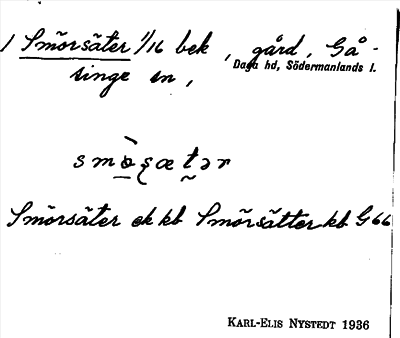 1 Smörsäter 1/16 bek, gård, Gå-
Daga hd, Södermanlands l.
singe sn,
Smörsäter ek kb Smörsätter kb G66
KARL-ELIS NYSTEDT 1936